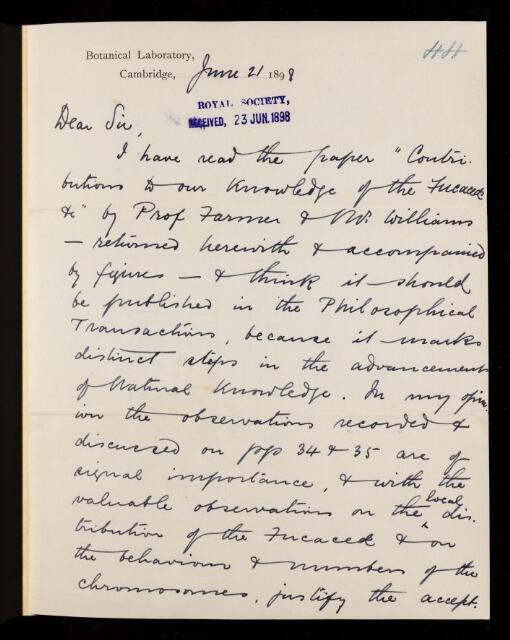 Botanical Laboratory,
HH
Cambridge, June 21 1898
ROYAL SOCIETY,
RECEIVED, 23 JUN. 1898
Dear Sir,
I have read the paper "Contri-
butions to our Knowledge of the Fucaceæ
&" by Prof Farmer & Mr. Williams
— returned herewith & accompanied
by figures — & think it should
be published in the Philosophical
Transactions, because it marks
distinct steps in the advancement
of Natural Knowledge. In my opin-
ion the observations recorded &
discussed on pp 34 & 35 are of
signal importance, & with the
valuable observations on the local dis-
tribution of the Fucaceæ & on
the behaviour & numbers of the
chromosomes, justify the accept-